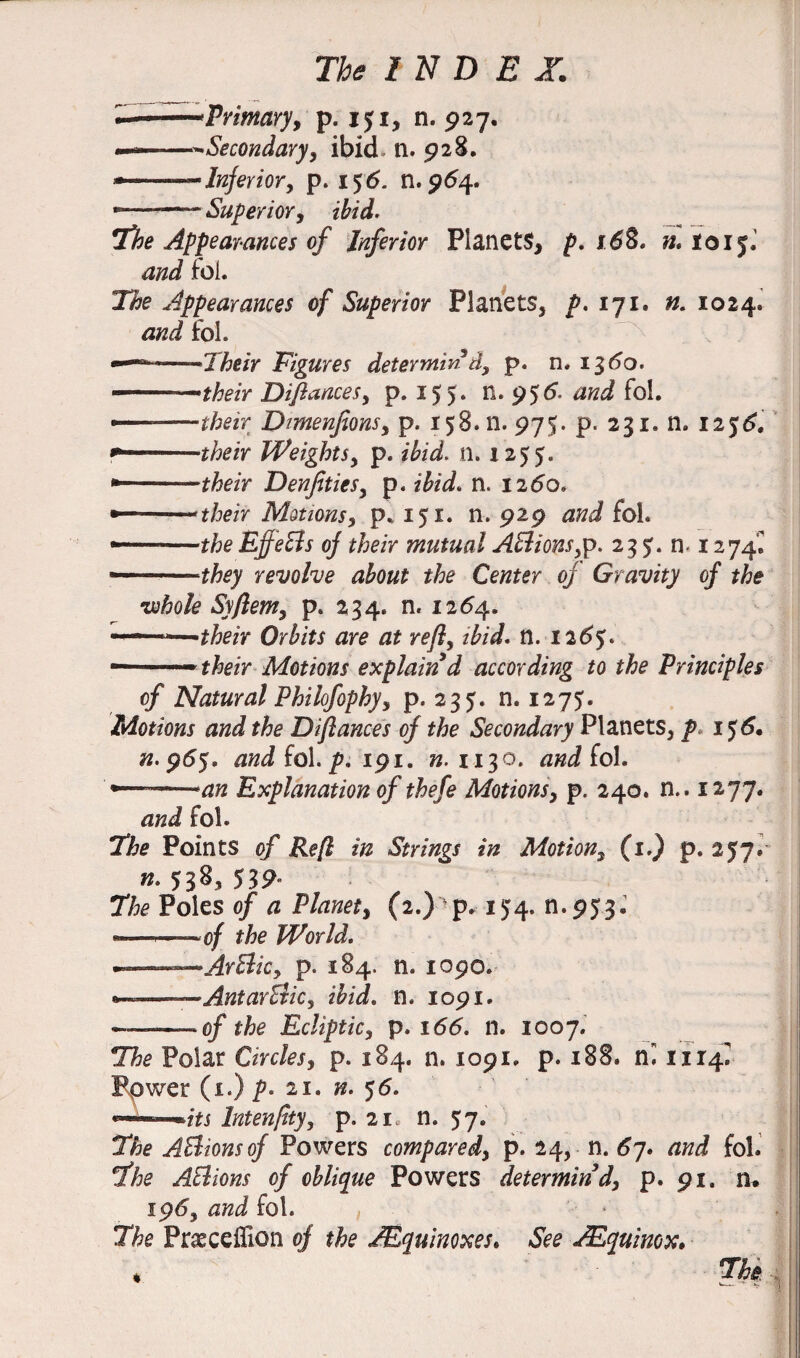 The INDEX.
———Primary, p. 151, n. 927.
———Secondary, ibid. n. 928.
———Inferior, p. 156. n. 964.
———Superior, ibid.
The Appearances of Inferior Planets, p. 168. n. 1015.
and fol.
The Appearances of Superior Planets, p. 171. n. 1024.
and fol.
———Their Figures determin'd, p. n. 1360.
———their Diſtances, p. 155. n. 956. and fol.
———their Dimenſions, p. 158. n. 975. p. 231. n. 1256.
———their Weights, p. ibid. n. 1255.
———their Denſities, p. ibid. n. 1260.
———their Motions, p. 151. n. 929 and fol.
———the Effects of their mutual Actions, p. 235. n. 1274.
———they revolve about the Center of Gravity of the
whole Syſtem, p. 234. n. 1264.
———their Orbits are at reſt, ibid. n. 1265.
———their Motions explain'd according to the Principles
of Natural Philoſophy, p. 235. n. 1275.
Motions and the Diſtances of the Secondary Planets, p. 156.
n. 965. and fol. p. 191. n. 1130. and fol.
———an Explanation of theſe Motions, p. 240. n.. 1277.
and fol.
The Points of Reſt in Strings in Motion, (1.) p. 257.
n. 538, 539.
The Poles of a Planet, (2.) p. 154. n. 953.
———of the World.
———Arctic, p. 184. n. 1090.
———Antarctic, ibid. n. 1091.
———of the Ecliptic, p. 166. n. 1007.
The Polar Circles, p. 184. n. 1091. p. 188. n. 1114.
Power (1.) p. 21. n. 56.
———its Intenſity, p. 21. n. 57.
The Actions of Powers compared, p. 24, n. 67. and fol.
The Actions of oblique Powers determin'd, p. 91. n.
196, and fol.
The Præceſſion of the Æquinoxes. See Æquinox.
The